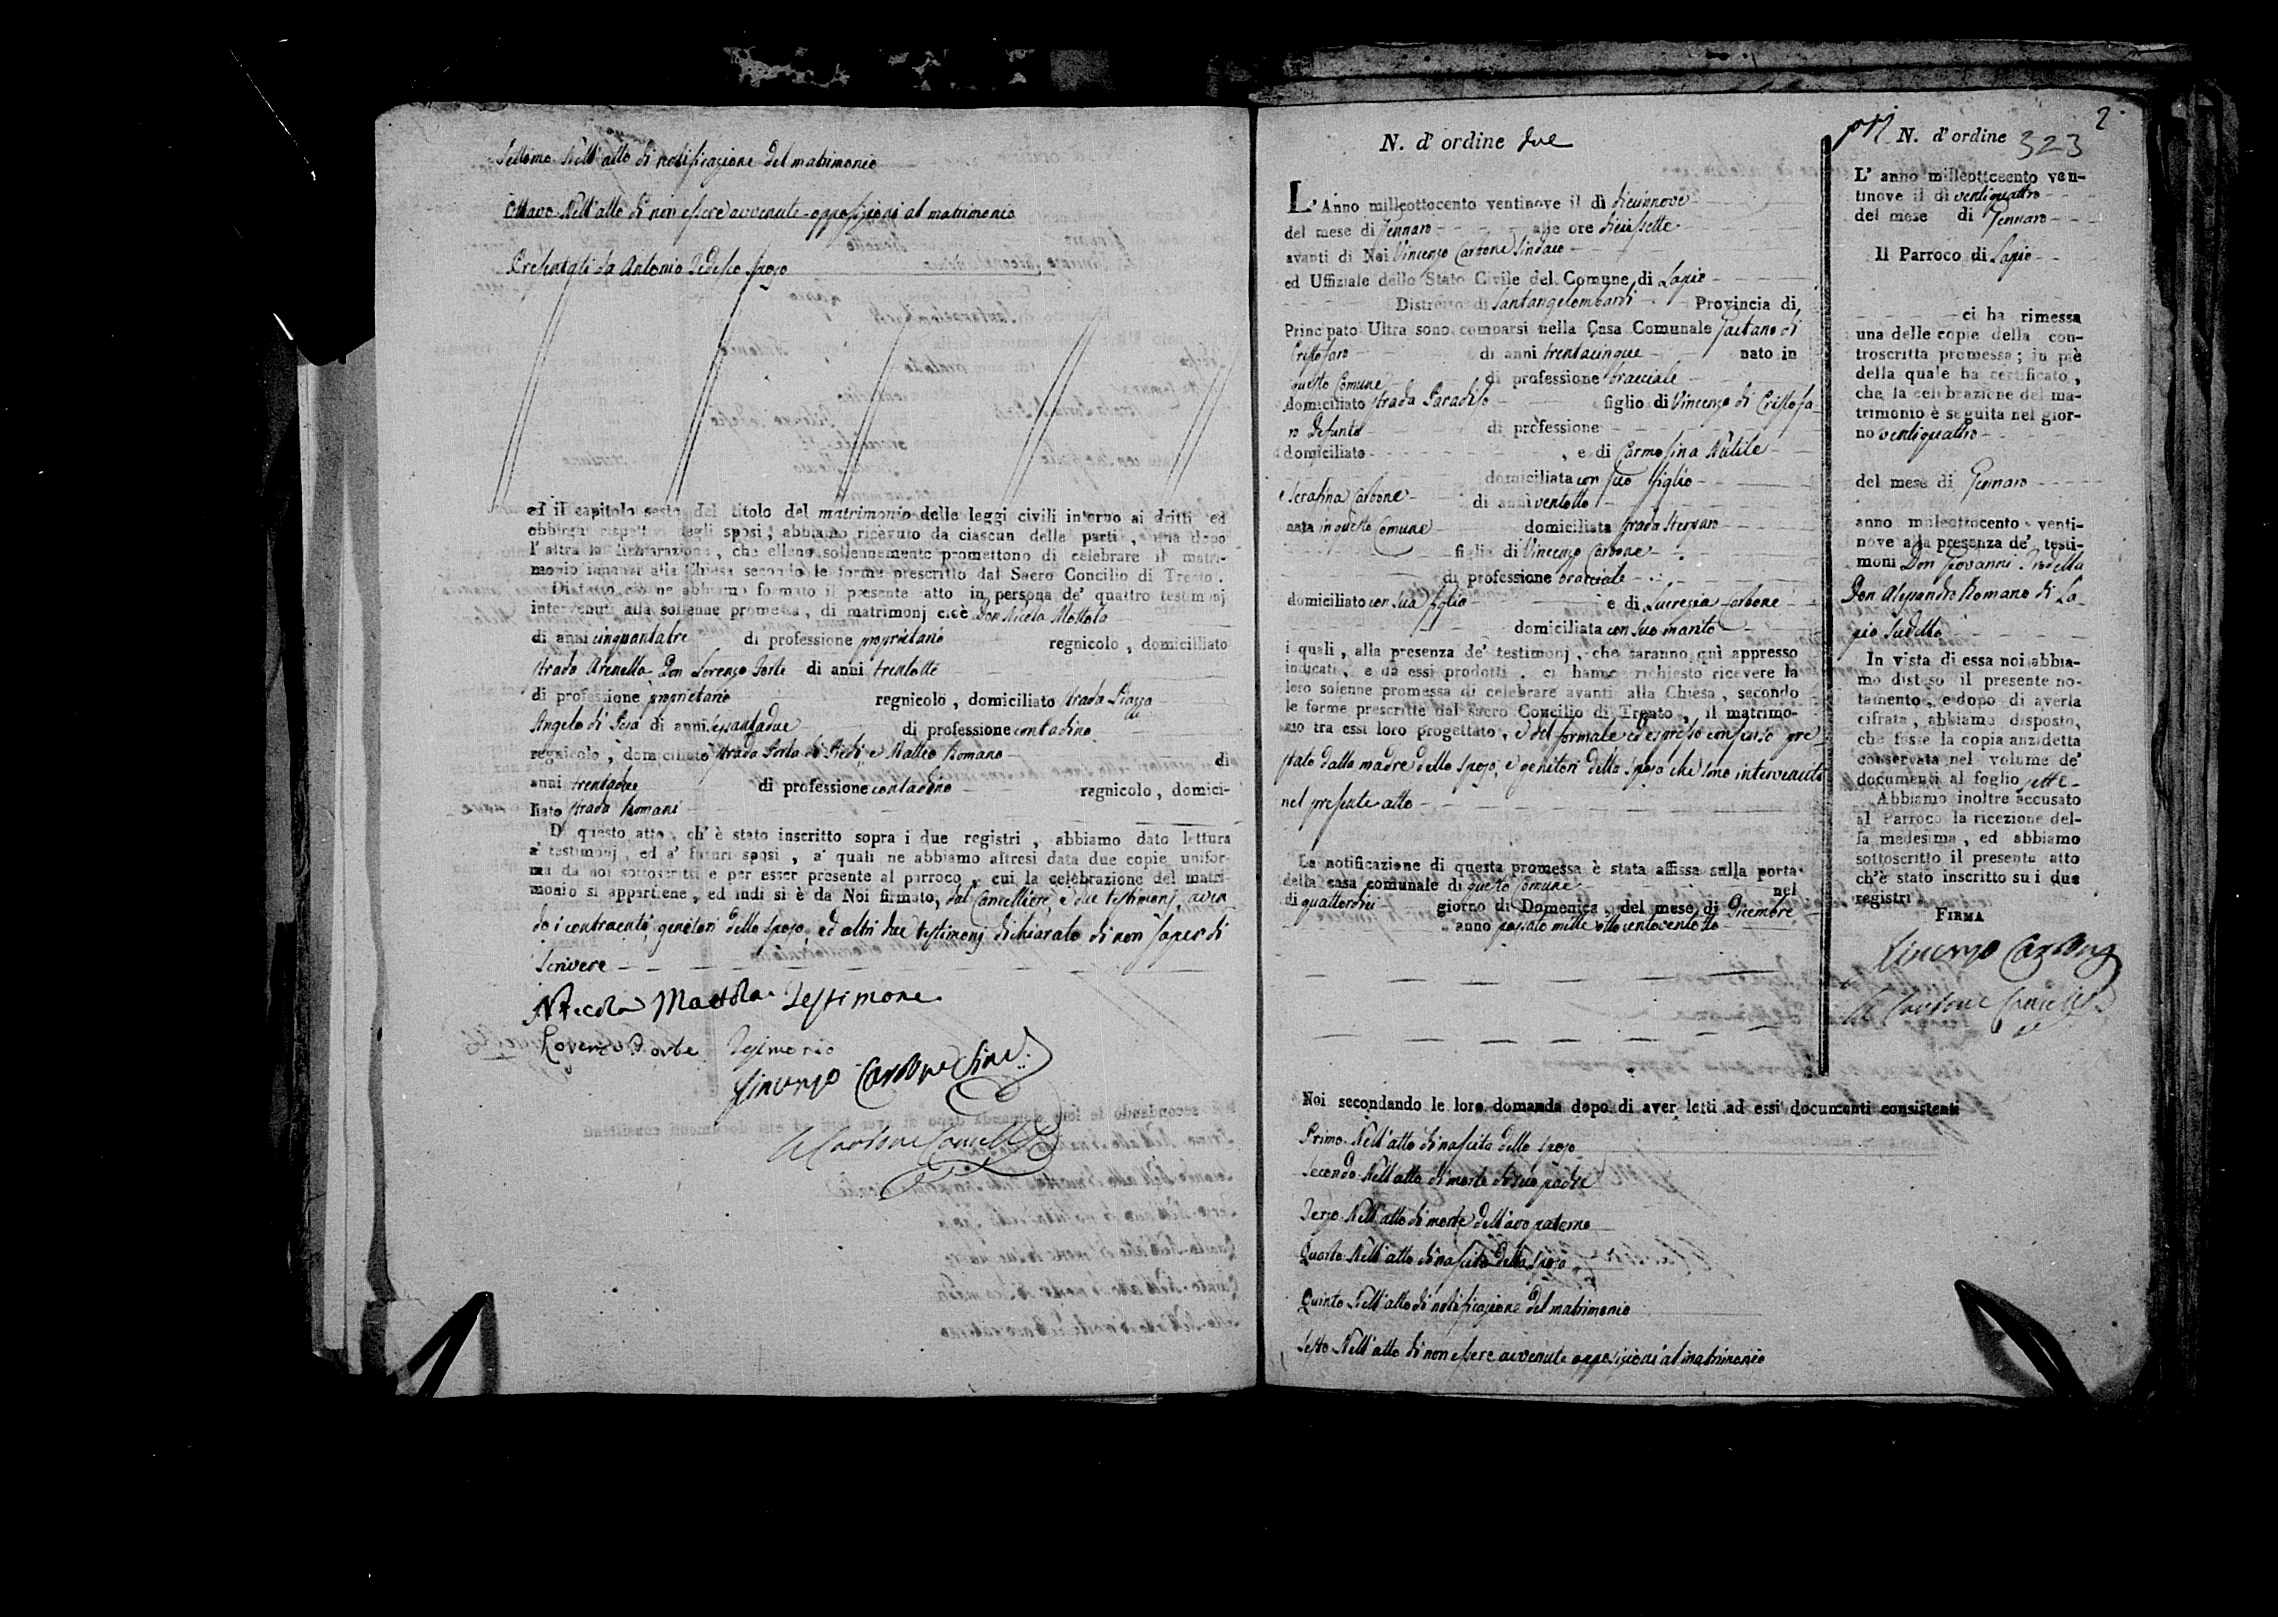 Settimo Nell'atto di notificazione del matrimonio
Ottavo Nell'atto di non essere avvenute opposizioni al matrimonio
Presentati da Antonio Tedesco sposo
ed il capitolo sesto del titolo del matrimonio delle leggi civili intorno ai dritti ed
obblighi rispettivi degli sposi; abbiamo ricevuto da ciascun delle parti, una dopo
l'altra la dichiarazione, che elleno sollennemente promettono di celebrare il matri-
monio innanzi alla Chiesa secondo le forme prescritto dal Sacro Concilio di Trento.
Di tutto ciò ne abbiamo formato il presente atto in persona de' quattro testimonj
intervenuti alla sollenne promessa, di matrimonj cioè Don Nicola Mottola
di anni cinquantatre di professione proprietario regnicolo, domicilliato
strada Arenella Don Lorenzo Forte di anni trentotto
di professione proprietario regnicolo, domiciliato strada Piazza
Angelo di Pesa di anni sessantadue di professione contadino
regnicolo, domiciliato strada Porta di Piedi, e Matteo Romano di
anni trentadue di professione contadino regnicolo, domici-
liato strada Romani
Di questo atto, ch'è stato inscritto sopra i due registri, abbiamo dato lettura
a' testimonj, ed a' futuri sposi, a' quali ne abbiamo altresì data due copie unifor-
ma da noi sottoscritti e per esser presente al parroco, cui la celebrazione del matri-
monio si appartiene, ed indi si è da Noi firmato, dal Cancelliere, e due testimonj, aven
do i contraenti, genitori dello sposo, ed altri due testimonj dichiarato di non saper di
scrivere
Nicola Mattola Testimone
Lorenzo Forte Tesimonio
Vincenzo Carbone Sind.
Carbone Cancell
N. d'ordine due
L'Anno milleottocento ventinove il dì diciannove
del mese di Gennaro alle ore diciasette
avanti di Noi Vincenzo Carbone Sindaco
ed Uffiziale dello Stato Civile del Comune di Lapio
Distretto di Santangelombardi Provincia di
Principato Ultra sono comparsi nella Casa Comunale Gaetano di
Cristofaro di anni trentacinque nato in
questo Comune di professione bracciale
domiciliato strada Paradiso figlio di Vincenzo di Cristofa-
ro defunto di professione
domiciliato , e di Carmosina Nutile
domiciliata con suo figlio
e Serafina Carbone di anni ventotto
nata in questo Comune domiciliata strada
figlia di Vincenzo Carbone
di professione bracciale
domiciliato con sua figlia e di Lucrezia Carbone
domiciliata con suo marito
i quali, alla presenza de' testimonj, che saranno quì appresso
indicati, e da essi prodotti, ci hanno richiesto ricevere la
loro solenne promessa di celebrare avanti alla Chiesa, secondo
le forme prescritte dal sacro Concilio di Trento, il matrimo-
nio tra essi loro progettato, e del formale ed espresso consenso pre
stato dalla madre dello sposo, e genitori della sposa che sono intervenuti
nel presente atto
La notificazione di questa promessa è stata affissa sulla porta
della casa comunale di questo Comune nel
di quattordici giorno di Domenica, del mese di Dicembre
anno passato mille ottocentoventotto
Noi secondando le loro domanda dopo di aver letti ad essi documenti consistenti
Primo Nell'atto di nascita dello sposo
Secondo Nell'atto di morte di suo padre
Terzo Nell'atto di morte dell'avo paterno
Quarto Nell'atto di nascita della sposa
Quinto Nell'atto di notificazione del matrimonio
Sesto Nell'atto di non essere avvenute opposizioni al matrimonio
2
N. d'ordine 323
L'anno milleottocento ven-
tinove il dì ventiquattro
del mese di Gennaro
Il Parroco di Lapio
ci ha rimessa
una delle copie della con-
troscritta promessa; in piè
della quale ha certificato,
che la celebrazione del ma-
trimonio è seguita nel gior-
no ventiquattro
del mese di Gennaro
anno milleottocento venti-
nove alla presenza de' testi-
moni Don Giovanni
Don Alesandro Romano di La-
pio sudetto
In vista di essa noi abbia-
mo disteso il presente no-
tamento, e dopo di averla
cifrata, abbiamo disposto,
che fosse la copia anzidetta
conservata nel volume de'
documenti al foglio sette
Abbiamo inoltre accusato
al Parroco la ricezione del-
la medesima, ed abbiamo
sottoscritto il presente atto
ch'è stato inscritto su i due
registri
FIRMA
Vincenzo Carbone
Carbone Cancell